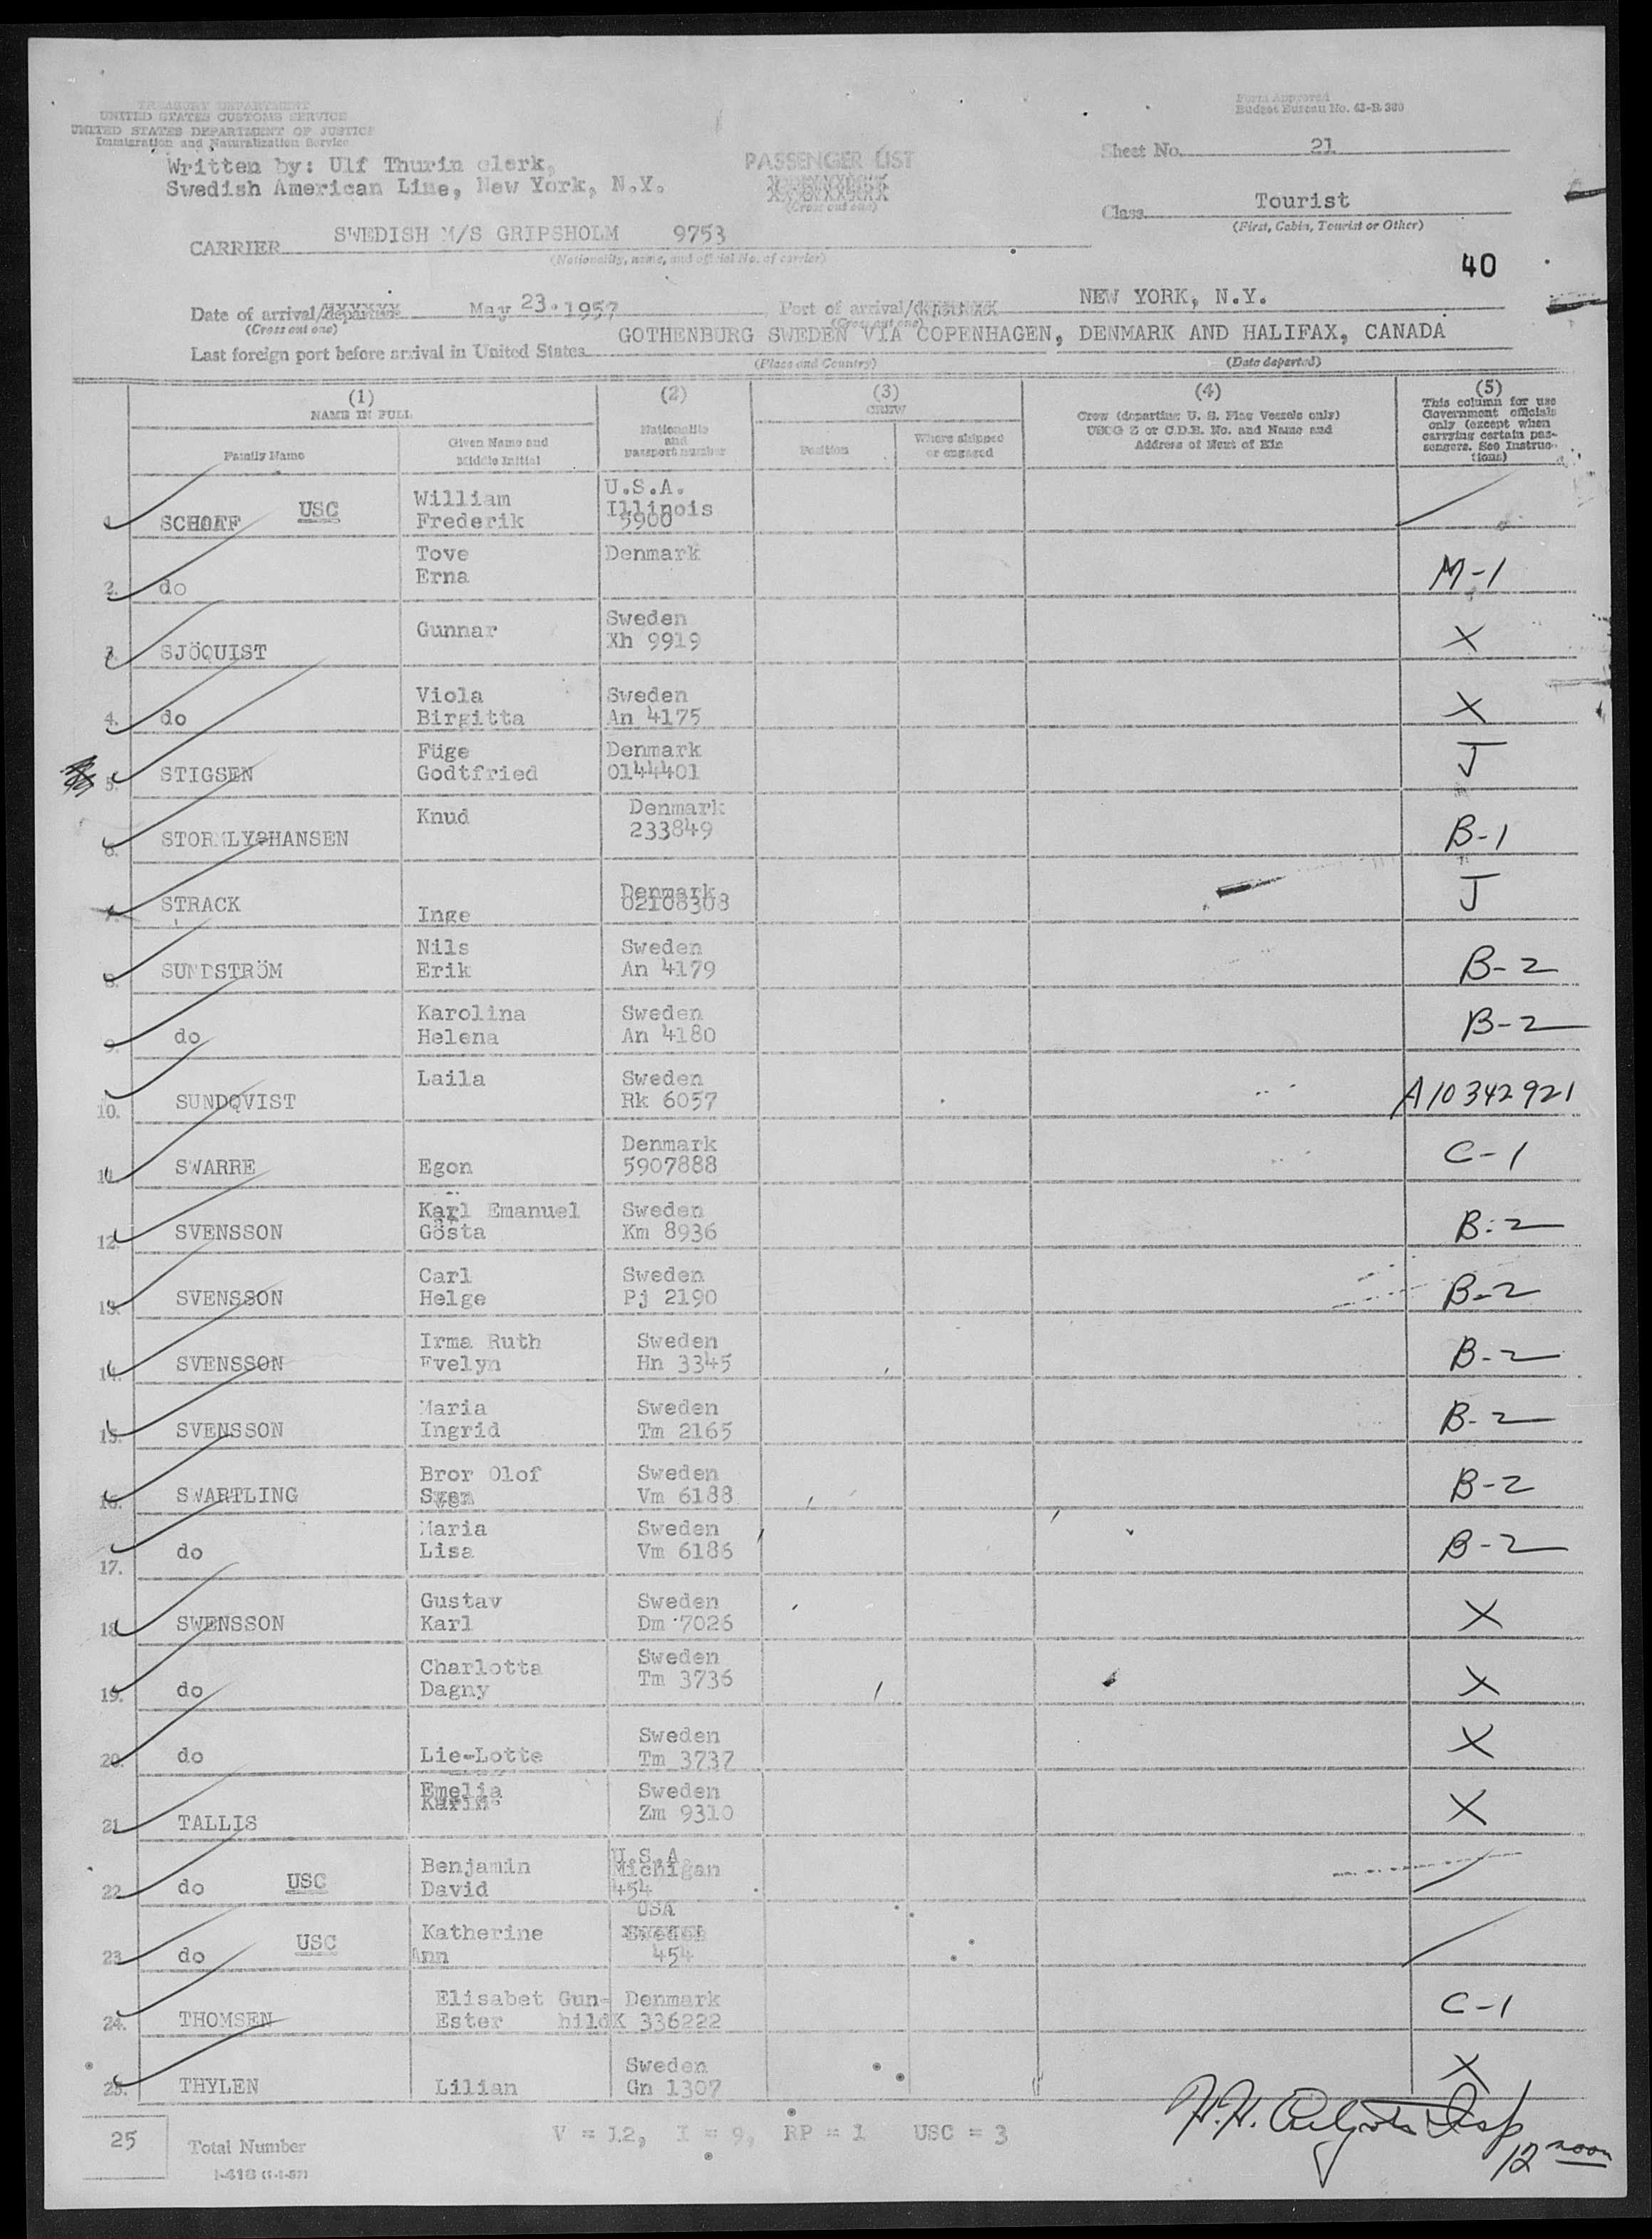 TREASURY DEPARTMENT
UNITED STATES CUSTOMS SERVICE
UNITED STATES DEPARTMENT OF JUSTICE
Immigration and Naturalization Service
Form Approved
Budget Bureau No. 43-R 380
Written by: Ulf Thurin clerk,
Swedish American Line, New York, N.Y.
PASSENGER LIST
(Cross out one)
Sheet No. 21
Class Tourist
(First, Cabin, Tourist or Other)
CARRIER SWEDISH M/S GRIPSHOLM 9753
(Nationality, name, and official No. of carrier)
40
Date of arrival/ May 23. 1957 Port of arrival/ NEW YORK, N.Y.
(Cross out one) (Cross out one)
Last foreign port before arrival in United States GOTHENBURG SWEDEN VIA COPENHAGEN, DENMARK AND HALIFAX, CANADA
(Place and Country) (Date departed)
(1) (2) (3) (4) (5)
NAME IN FULL
Family Name
Given Name and
Middle Initial
Nationality
and
passport number
CREW
Position
Where shipped
or engaged
Crew (departing U. S. Flag Vessels only)
USCG Z or C.D.B. No. and Name and
Address of Next of Kin
This column for use
Government officials
only (except when
carrying certain pas-
sengers. See Instruc-
tions)
1. SCHOFF USC William Frederik U.S.A. Illinois 5900
2. do Tove Erna Denmark M-1
3. SJÖQUIST Gunnar Sweden Xh 9919 X
4. do Viola Birgitta Sweden An 4175 X
5. STIGSEN Füge Godtfried Denmark 0144401 J
6. STORMLY-HANSEN Knud Denmark 233849 B-1
7. STRACK Inge Denmark 02108308 J
8. SUNDSTRÖM Nils Erik Sweden An 4179 B-2
9. do Karolina Helena Sweden An 4180 B-2
10. SUNDQVIST Laila Sweden Rk 6057 A10342921
11. SWARRE Egon Denmark 5907888 C-1
12. SVENSSON Karl Emanuel Gösta Sweden Km 8936 B-2
13. SVENSSON Carl Helge Sweden Pj 2190 B-2
14. SVENSSON Irma Ruth Evelyn Sweden Hn 3345 B-2
15. SVENSSON Maria Ingrid Sweden Tm 2165 B-2
16. SWARTLING Bror Olof Sven Sweden Vm 6188 B-2
17. do Maria Lisa Sweden Vm 6186 B-2
18. SWENSSON Gustav Karl Sweden Dm 7026 X
19. do Charlotta Dagny Sweden Tm 3736 X
20. do Lie-Lotte Sweden Tm 3737 X
21. TALLIS Emelia Karin Sweden Zm 9310 X
22. do USC Benjamin David U.S.A. Michigan 454
23. do USC Katherine Ann USA 454
24. THOMSEN Elisabet Gun- Ester hild Denmark K 336222 C-1
25. THYLEN Lilian Sweden Gn 1307 X
25 Total Number
I-418 (1-1-57)
V = 12, I = 9, RP = 1 USC = 3
12 noon